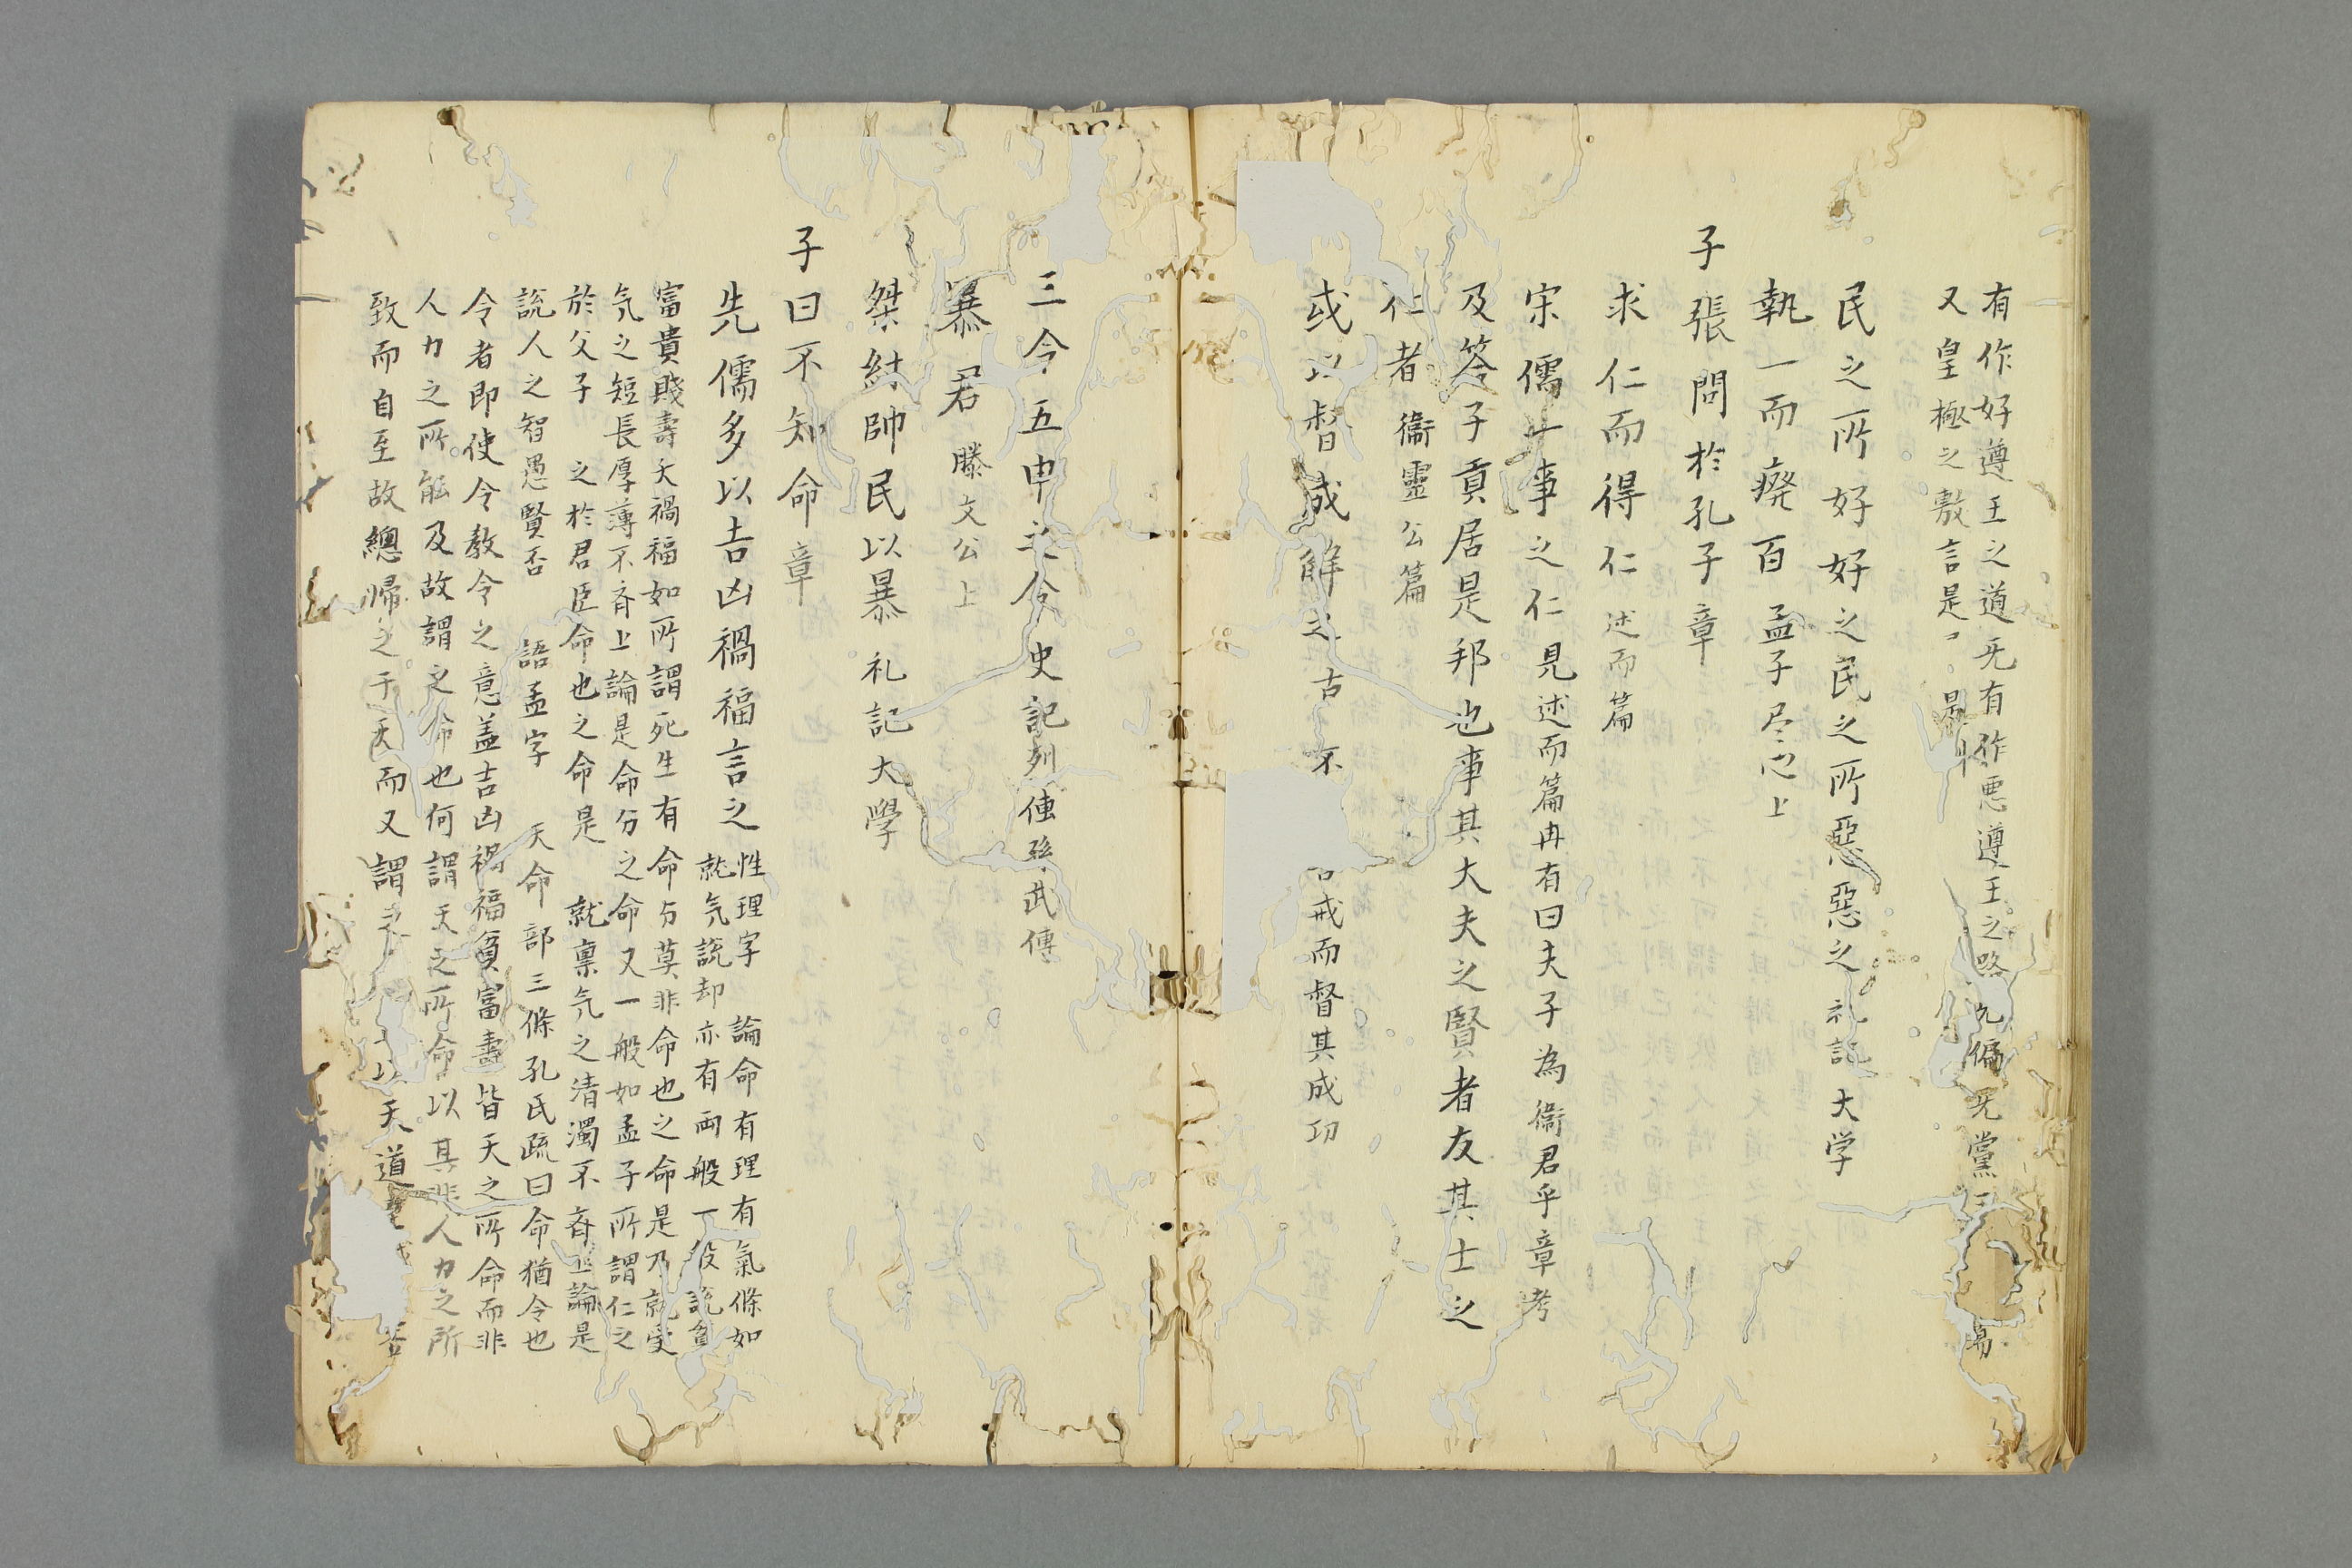 有作好遵王之道无有作悪遵王之路无偏无黨王
又皇極之敷言是
民之所好好之民之所惡惡之礼記大学
執一而癈百孟子尽心上
子張問於孔子章
求仁而得仁述而篇
宋儒一事之仁見述而篇冉有曰夫子為衞君乎章考
及答子貢居是邦也事其大夫之賢者友其士之
仁者衞靈公篇
或以督成解之古不戒而督其成功
三令五申之令史記列傳孫武傳
暴君滕文公上
桀紂帥民以暴礼記大學
子曰不知命章
先儒多以吉凶禍福言之性理字論命有理有氣條如
就気説却亦有両般一般説貧
富貴賤壽夭禍福如所謂死生有命与莫非命也之命是乃就受
気之短長厚薄不斉上論是命分之命又一般如孟子所謂仁之
於父子之於君臣命也之命是就稟気之清濁不斉上論是
説人之智愚賢否語孟字天命部三條孔氏疏曰命猶令也
令者即使令教令之意盖吉凶禍福貧富盡皆天之所命而非
人力之所能及故謂之命也何謂天之所命以其非人力之所
致而自至故總歸之于天而又謂之以天道